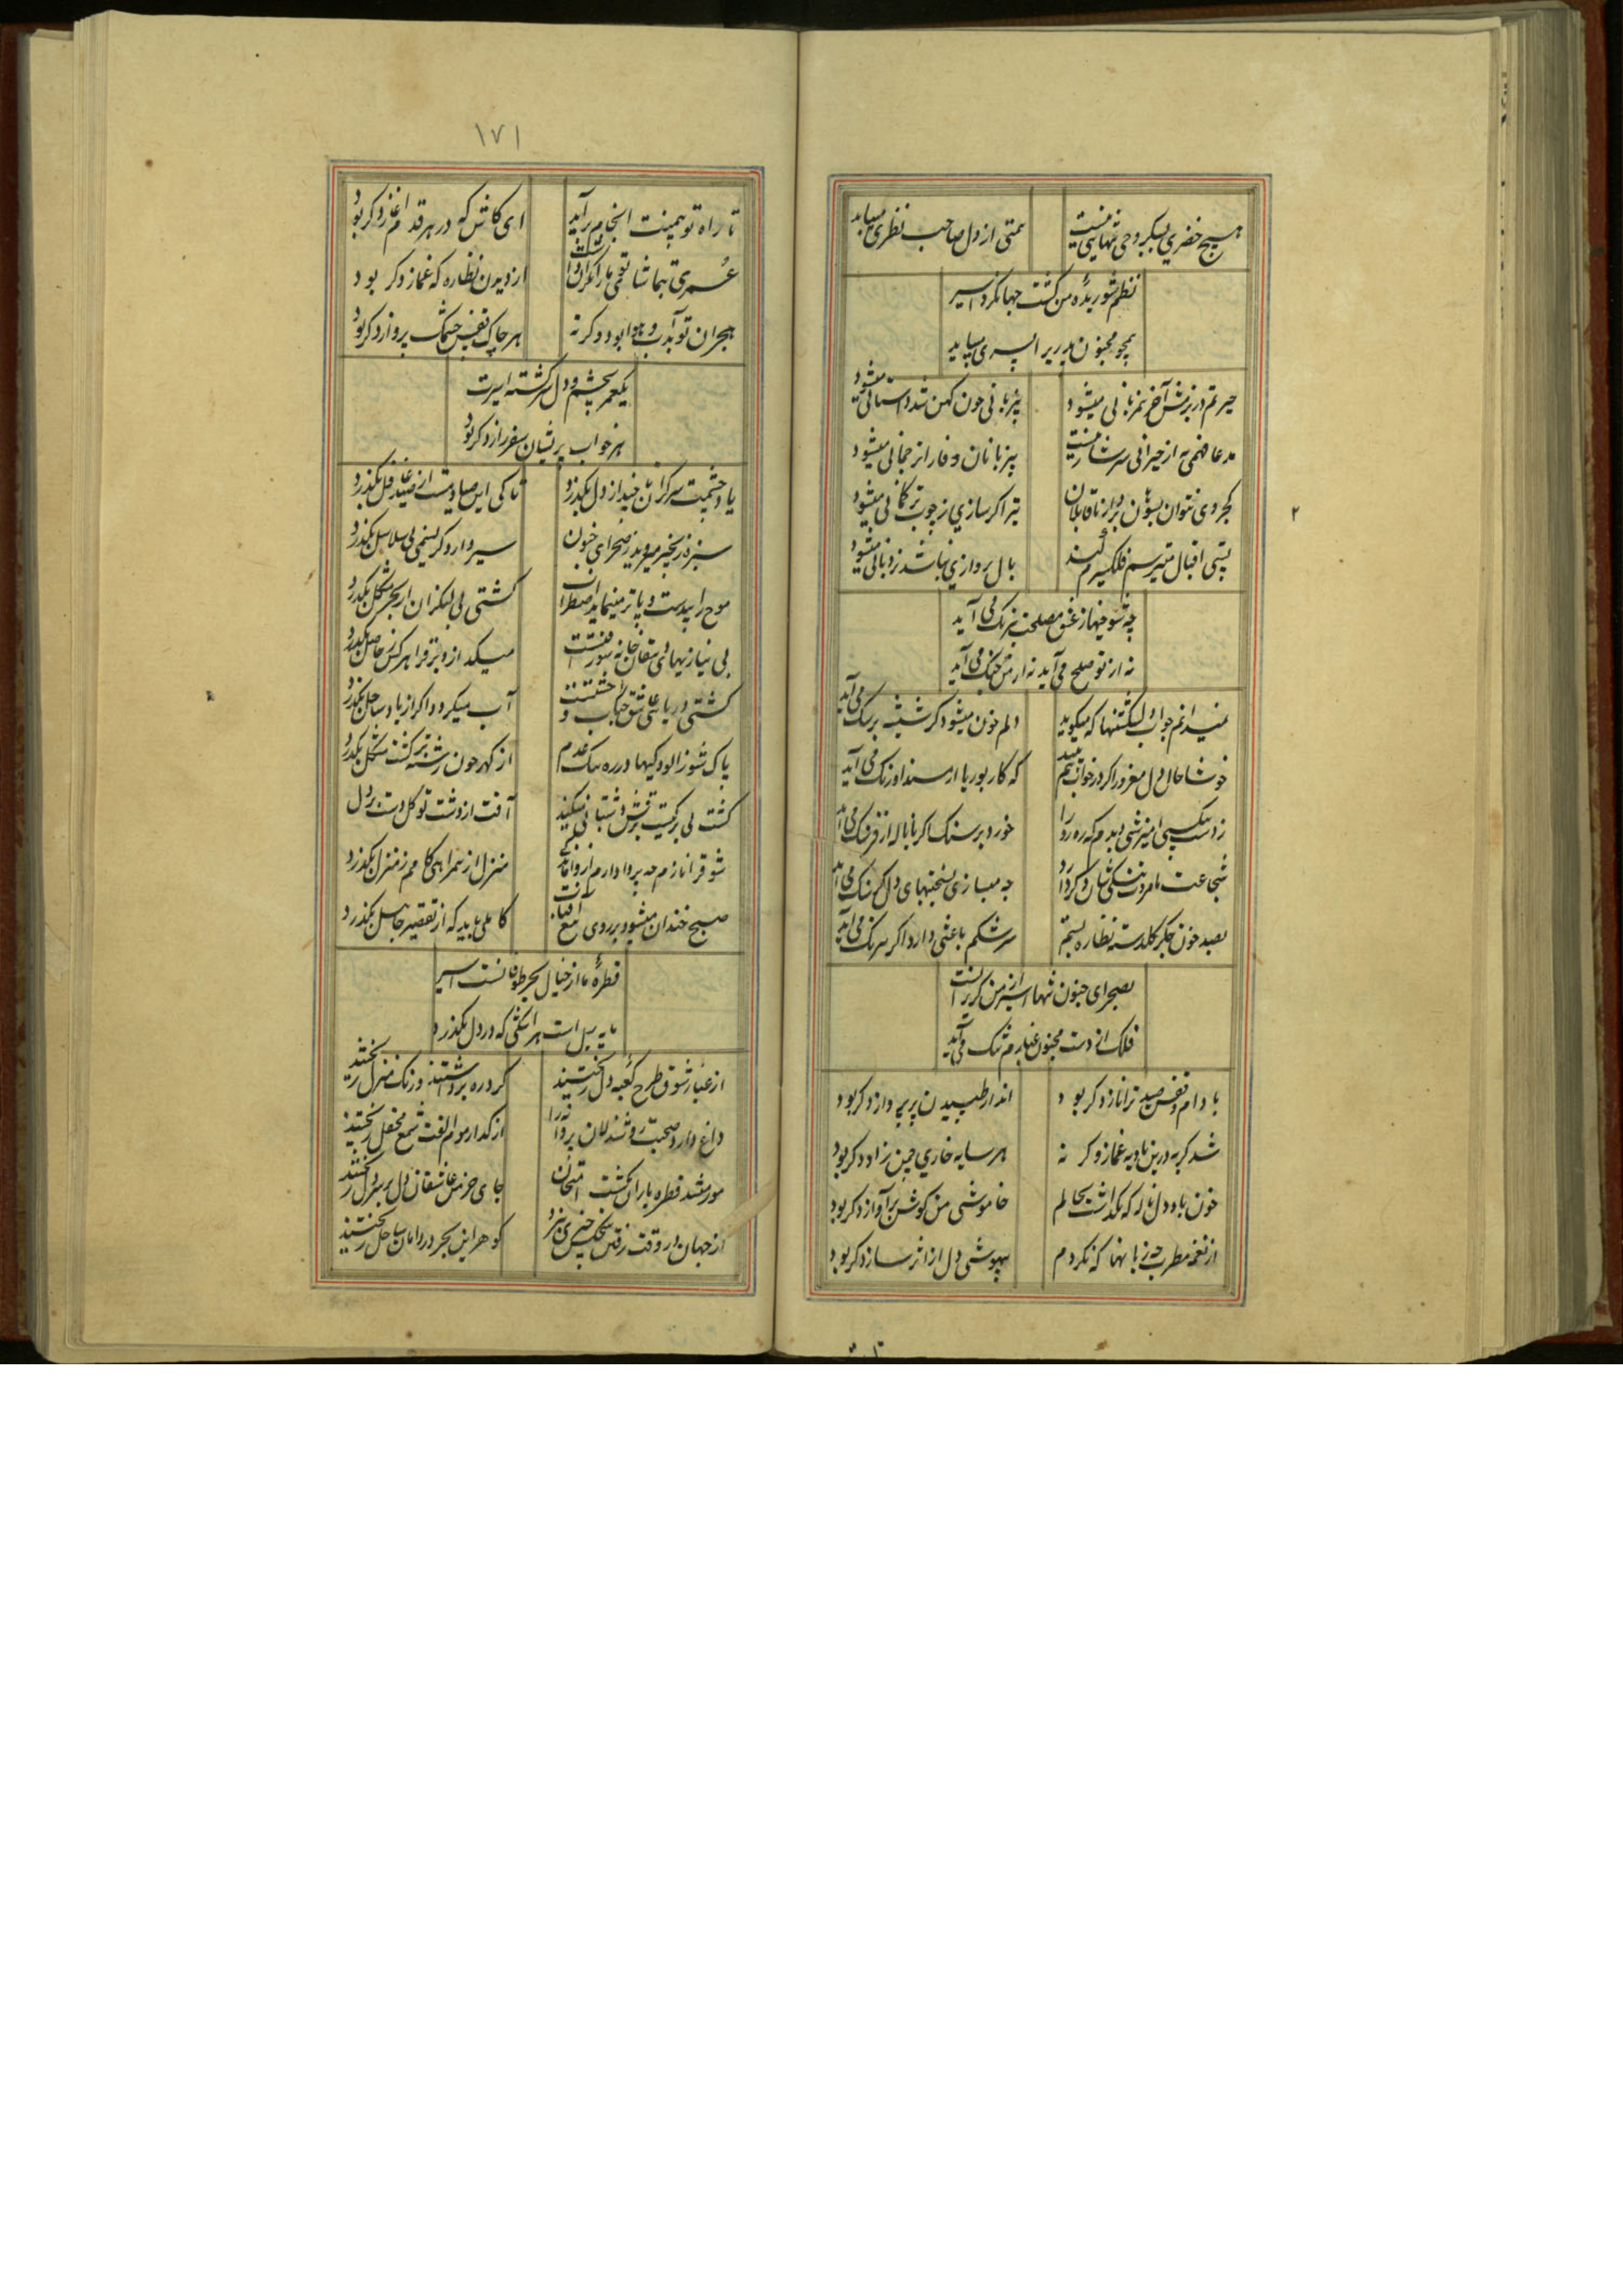 هیچ خضری بسبکروحی تنهایی نیست
همتی از دل صاحب نظری میباید
نظم شوریده من گشت جهانگرد اسیر
همچو مجنون پدریرا پسری میباید
حیرتم در بزمش آخر همزبانی میشود
بیزبانی چون کهن شد داستانی میشود
مدعا فهمی به از حیرانی سرشار نیست
بیزبانان وفا را ترجمانی میشود
کجروی نتوان بسوزن برد از ناقابلان
تیر اگر سازی ز چوب تر کمانی میشود
پستی اقبال
بال پروازی نباشد نردبانی میشود
۲
چه شوخیها ز عشق مصلحت نیرنگ می آید
نه از تو صلح می آید نه از من جنگ می آید
نمیدانم جواب دلشکستنها که میگوید
دلم خون میشود گر شیشه بر سنگ می آید
خوشا حال دل مغرور اگر در خواب هم بیند
که کار بوریا از مسند اورنگ می آید
خورد بر سنگ اگر تا ناله از فرسنگ می آید
شجاعت با مروت
چه میسازی بسختیهای دل گر سنگ می آید
بصد خون جگر گلدسته نظاره بستم
سرشکم باغشی دارد اگر بیرنگ می آید
بصحرای جنون تنها اسیر از من گریزانست
فلک از دست مجنون غبارم تنگ می آید
با دام و قفس صید ترا ناز دگر بود
انداز طپیدن پر پرواز دگر بود
شد گریه درین بادیه غماز وگر نه
هر سایه خاری چمن زاد دگر بود
خون باد دل ناله که نگذاشت بحالم
خاموشی من گوش بر آواز دگر بود
از نغمه مطرب چه زیانها که نکردم
بیهوشی دل از اثر ساز دگر بود
۱۷۱
تا راه تو می‌پیش انجام برآید
ای کاش که در هر قدم آغاز دگر بود
عمری بتماشا
از دیدن نظاره که غماز دگر بود
هجران تو آب و هوا بود وگرنه
هر چاک قفس چشمک پرواز دگر بود
یکعمر بچشم و دل سرگشته اسیرت
هر خواب پریشان سفر راز دگر بود
یاد چشمت سرگران تا چند از دل بگذرد
تا کی این صیاد مست از صید غافل بگذرد
سبزه زنجیر میروید ز صحرای جنون
سیر دارد گر نسیمی بی سلاسل بگذرد
موج را بیدست و پاتر مینماید اضطراب
کشتی بی لنگر از این بحر مشکل بگذرد
بی نیازیهای دهقان خانه سوز منتست
میگدازد برق را هر کس ز حاصل بگذرد
کشتی دریای عاشق خشتست
آب میگردد اگر از یاد ساحل بگذرد
پاک شو ز آلودگیها در ره تنگ عدم
از گهر چون رشته تر گشت مشکل بگذرد
کشت بی برگیست
آفت از دشت توکل دست بر دل
شوق را نازم چه پروا دارم از واماندگی
منزل از همراهی گامم ز منزل بگذرد
صبح خندان میشود بر روی تیغ آفتاب
کاملی باید که از تقصیر جاهل بگذرد
قطرهٔ ما از خیال بحر طوفانست اسیر
مایه سیل است هر اشکی که در دل بگذرد
از غبار شوق طرح کعبه دل ریختند
گرد ره برداشتند و رنگ منزل ریختند
داغ دارد صحبت روشندلان پروانه را
از گداز موم الفت شمع محفل ریختند
مور میشد قطره باران کشت امتحان
جای خرمن عاشقان دل بر سر دل ریختند
از جهان در وقت رفتن هیچکس چیزی نبرد
گوهر این بحر در دامان ساحل ریختند